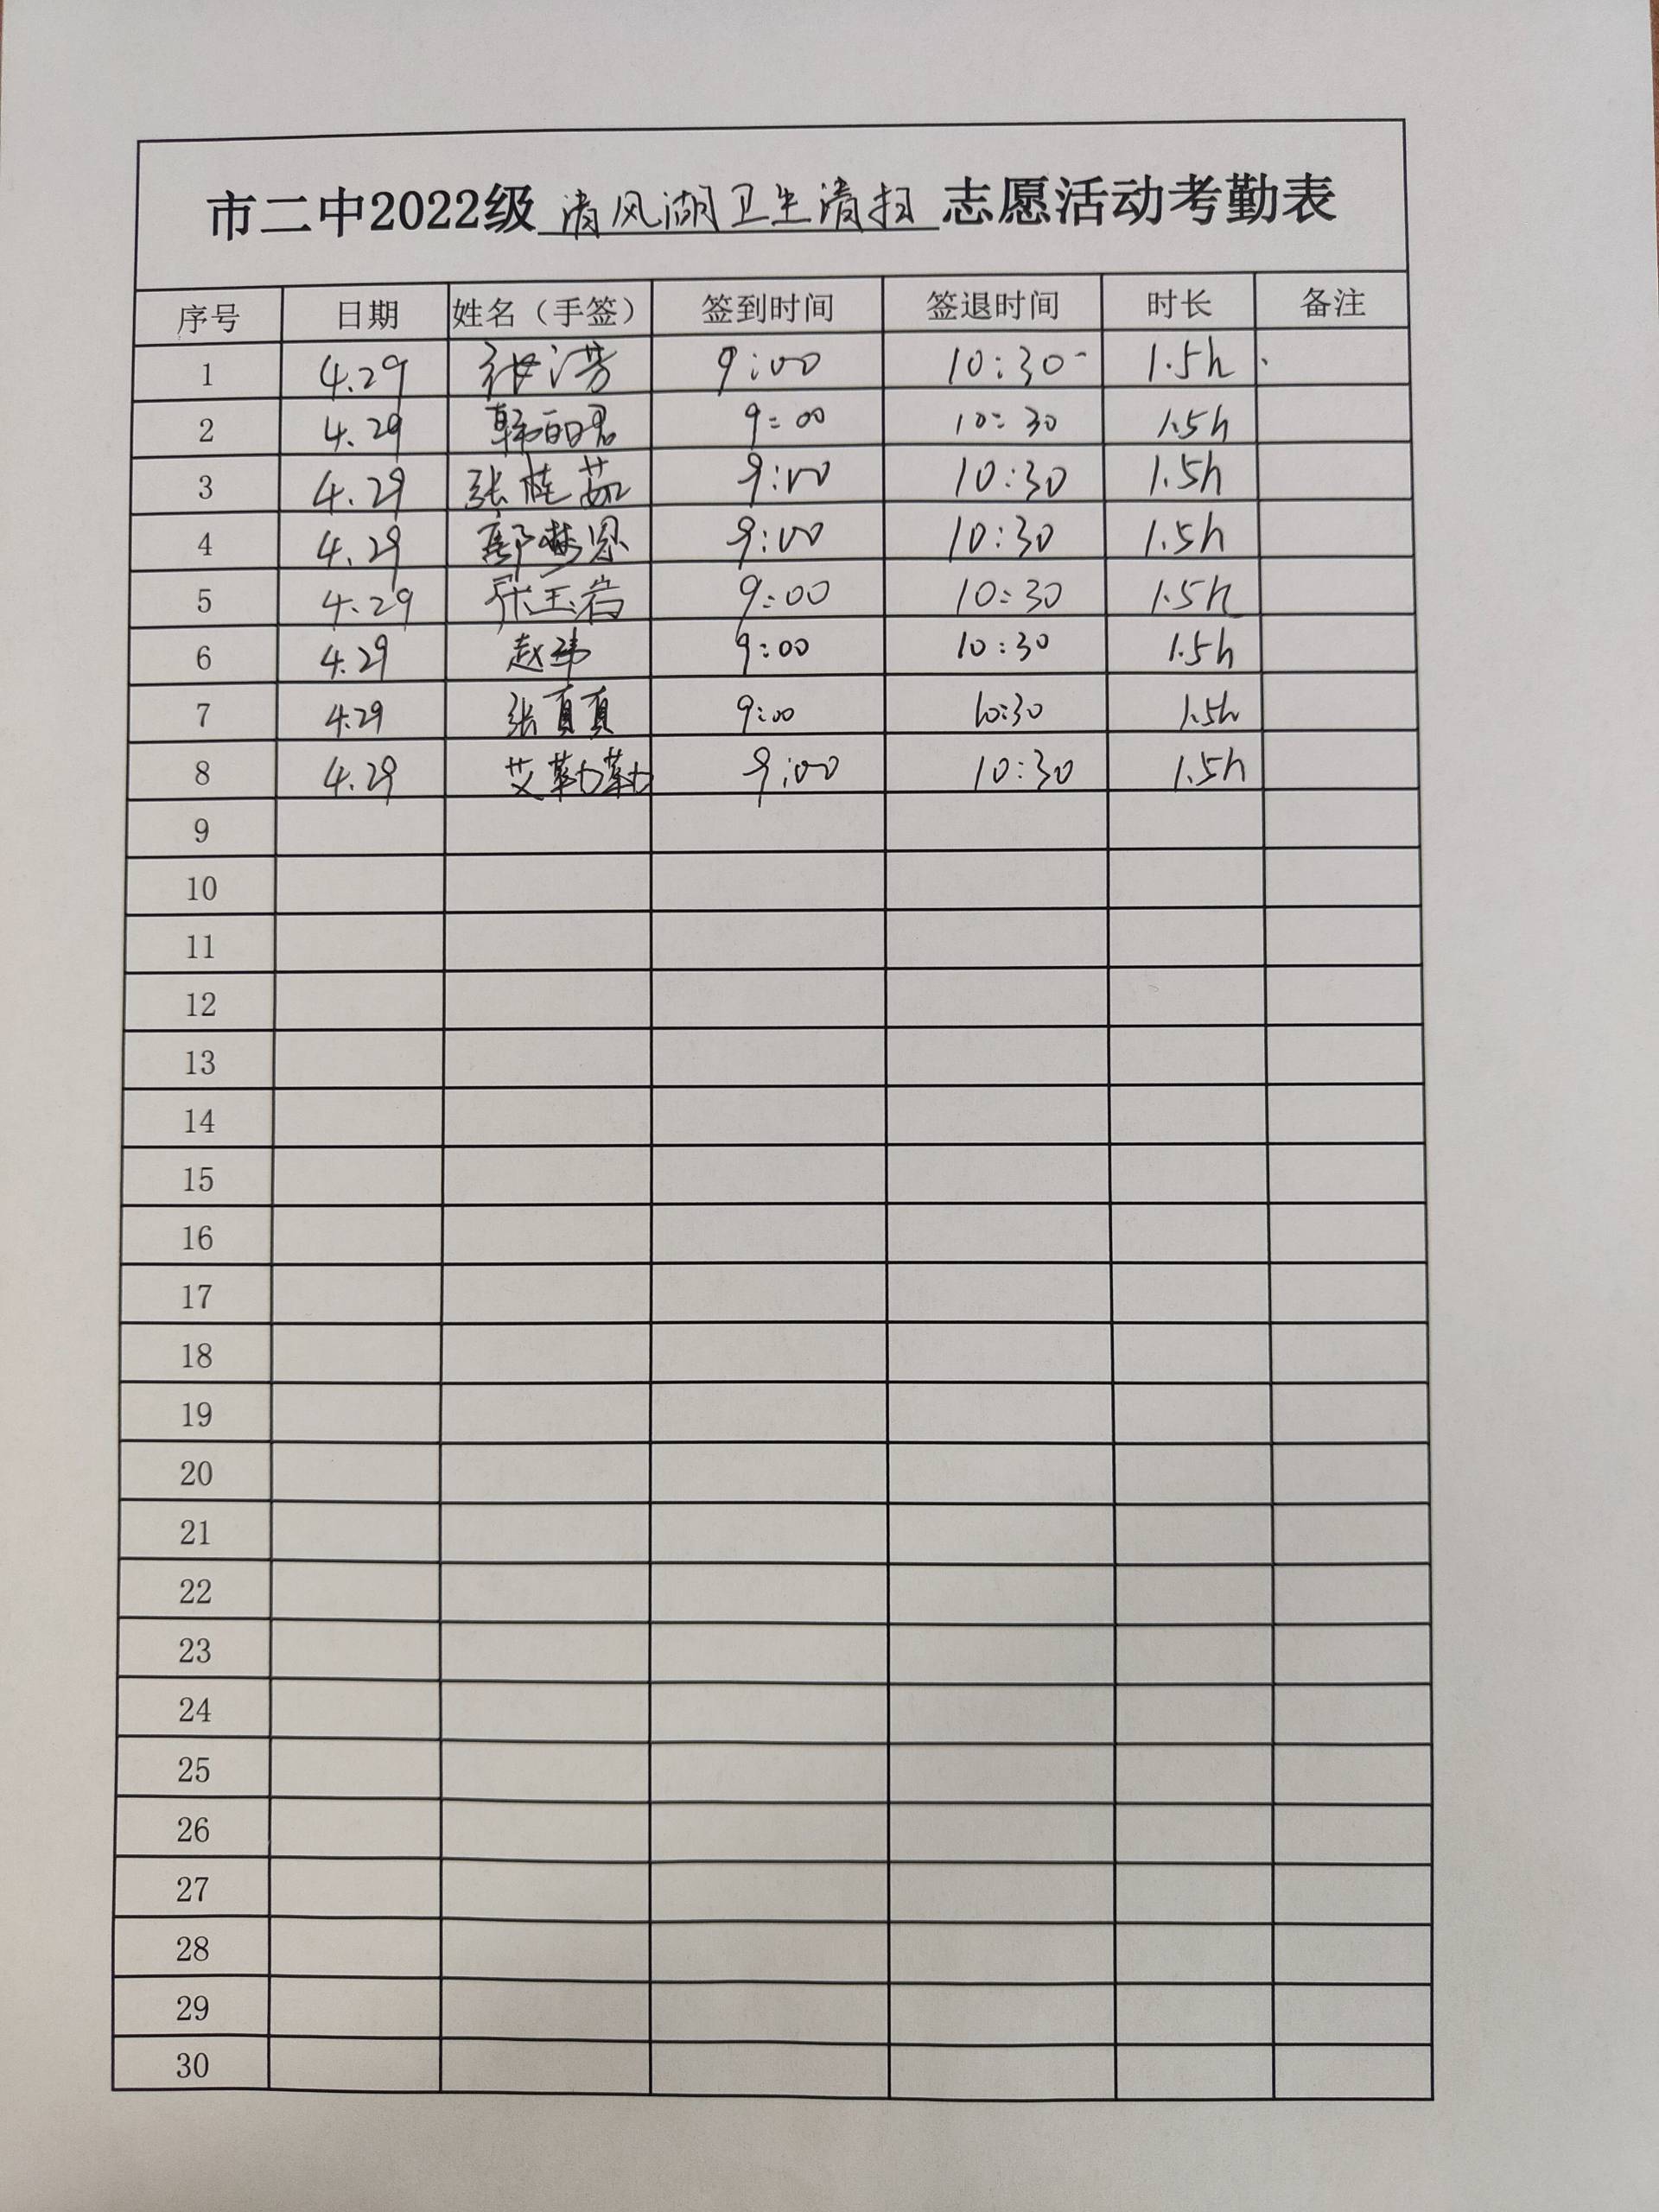 市二中2022级 清风湖卫生清扫 志愿活动考勤表
序号 日期 姓名（手签） 签到时间 签退时间 时长 备注
1 4.29 9:00 10:30 1.5h
2 4.29 9:00 10:30 1.5h
3 4.29 张桂茹 9:00 10:30 1.5h
4 4.29 9:00 10:30 1.5h
5 4.29 张玉岩 9:00 10:30 1.5h
6 4.29 赵玮 9:00 10:30 1.5h
7 4.29 9:00 10:30 1.5h
8 4.29 艾勒勒 9:00 10:30 1.5h
9
10
11
12
13
14
15
16
17
18
19
20
21
22
23
24
25
26
27
28
29
30